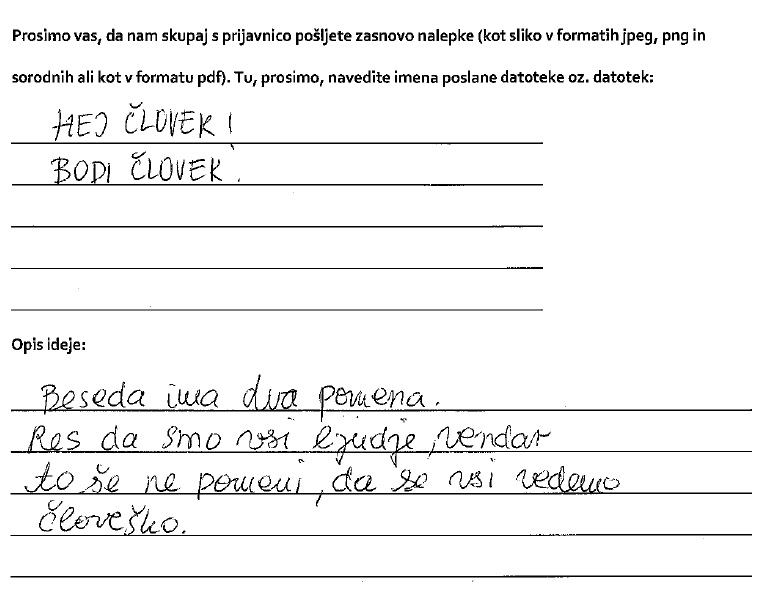 Prosimo vas, da nam skupaj s prijavnico pošljete zasnovo nalepke (kot sliko v formatih jpeg, png in
sorodnih ali kot v formatu pdf). Tu, prosimo, navedite imena poslane datoteke oz. datotek:
HEJ ČLOVEK!
BODI ČLOVEK!
Opis ideje:
Beseda ima dva pomena.
Res da smo vsi ljudje, vendar
to še ne pomeni, da se vsi vedemo
človeško.